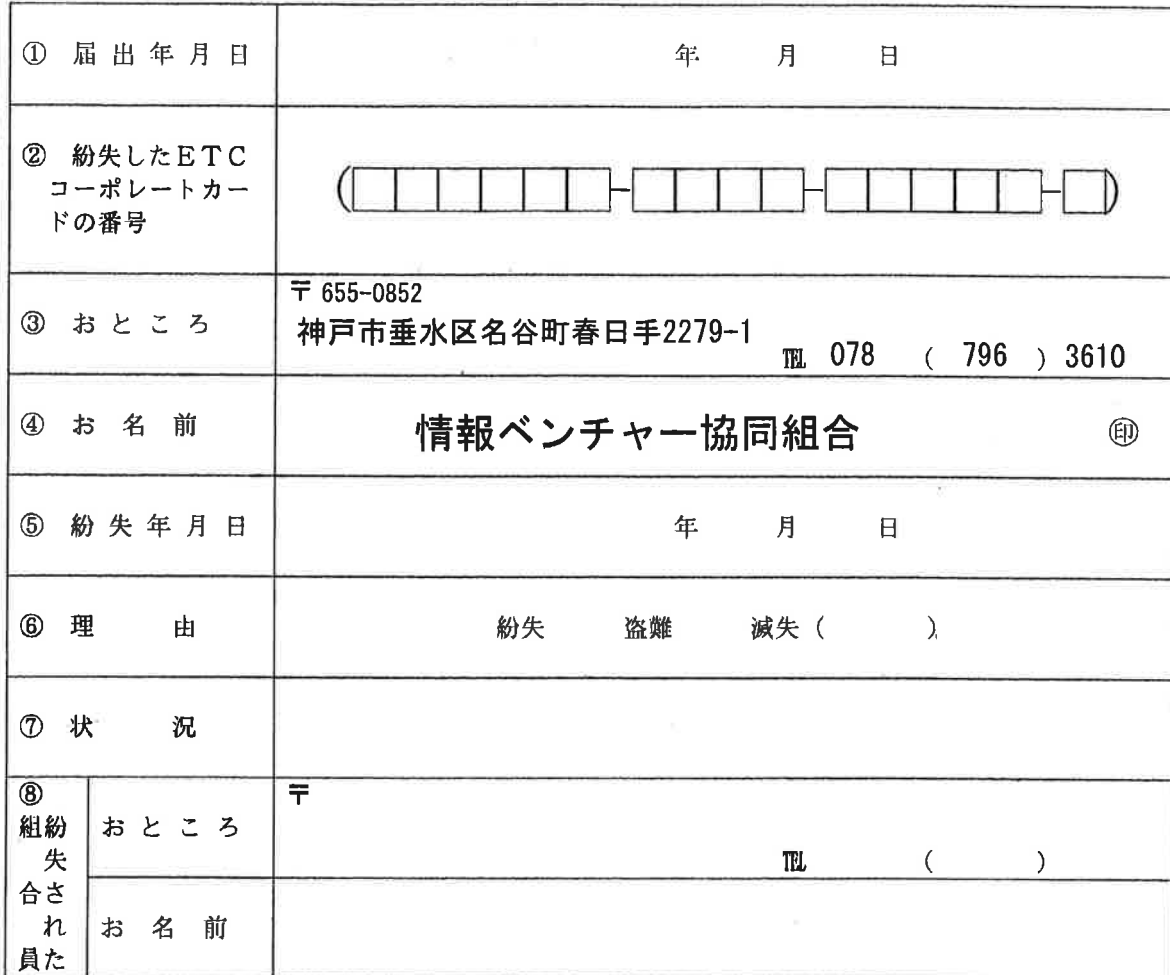 ① 届出年月日 年 月 日
② 紛失したETC
コーポレートカー
ドの番号
( - - - )
③ おところ
〒 655-0852
神戸市垂水区名谷町春日手2279-1
℡ 078 ( 796 ) 3610
④ お名前 情報ベンチャー協同組合 ㊞
⑤ 紛失年月日 年 月 日
⑥ 理由 紛失 盗難 滅失 ( )
⑦ 状況
⑧
紛失された
組合員
おところ
〒
℡ ( )
お名前